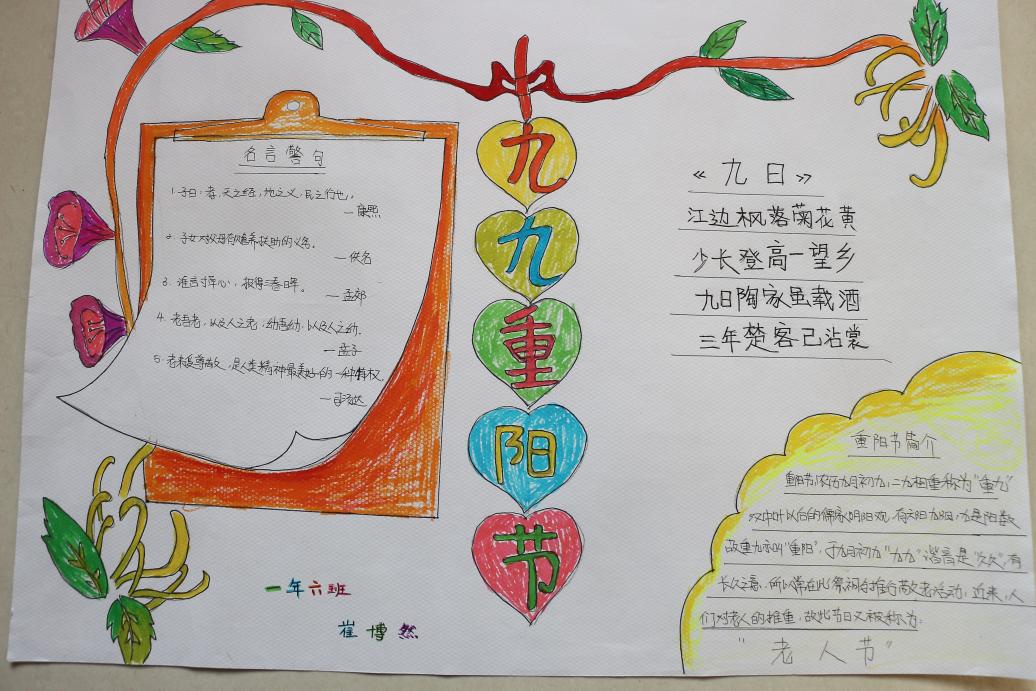 九九重阳节
名言警句
1.子曰：孝，天之经，地之义，民之行也。
—康熙
2.子女对父母有赡养扶助的义务。
—佚名
3.谁言寸草心，报得三春晖。
—孟郊
4.老吾老，以及人之老；幼吾幼，以及人之幼。
—孟子
5.老来受尊敬，是人类精神最美好的一种特权。
《九日》
江边枫落菊花黄
少长登高一望乡
九日陶家虽载酒
三年楚客已沾裳
重阳节简介
重阳节农历九月初九，二九相重称为"重九"
汉中叶以后的儒家阴阳观，有六阴九阳，九是阳数
故重九亦叫"重阳"，于九月初九"九九"谐音是"久久"，有
长久之意，所以常在此祭祖与推行敬老活动，近来，人
们对老人的推重，故此节日又被称为：
"老人节"
一年六班
崔博然